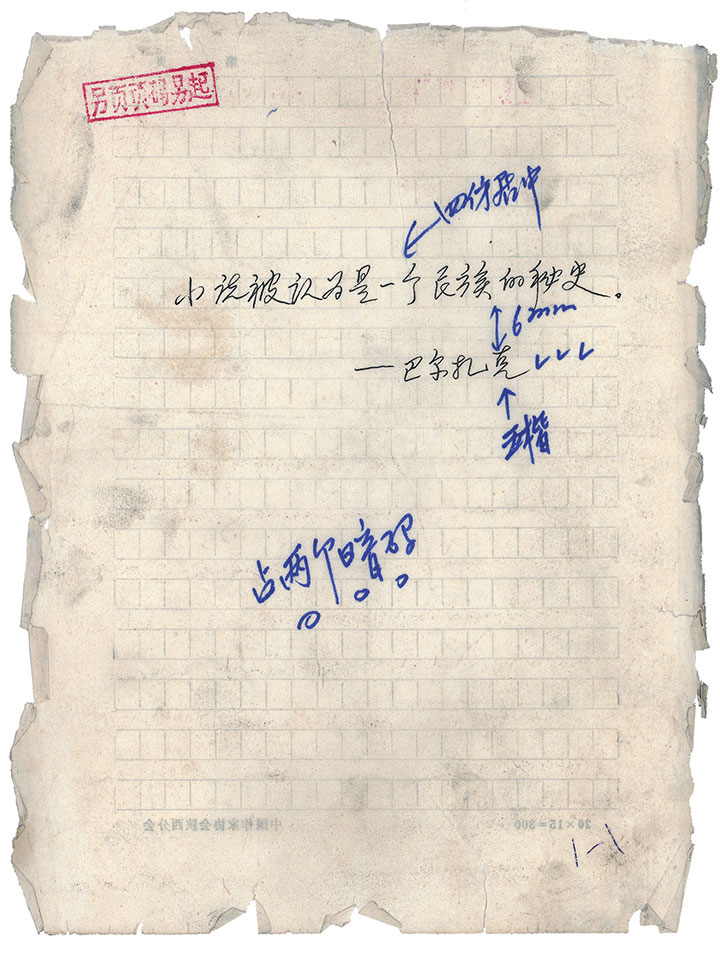 另页页码另起
四仿居中
小说被认为是一个民族的秘史。
6mm
—巴尔扎克
五楷
占两个暗码
中国作家协会陕西分会
20×15=300
1-1